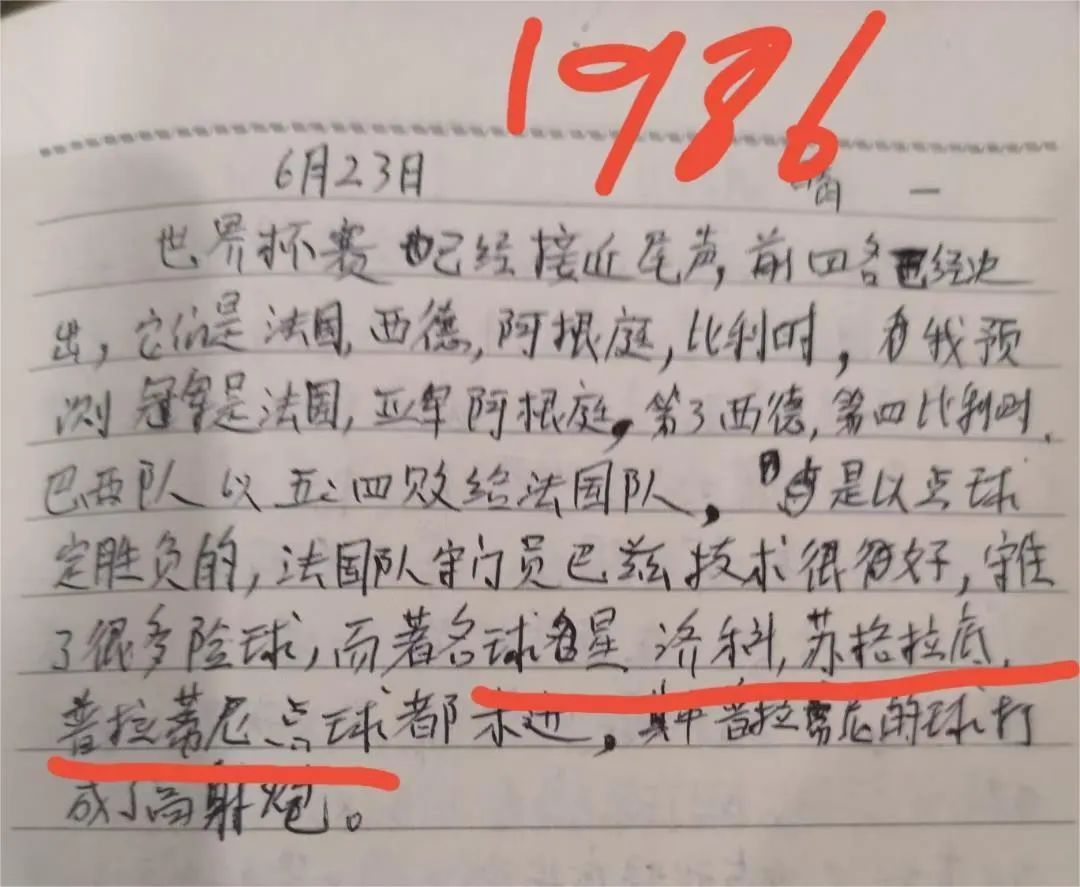 1986
6月23日 晴 一
世界杯赛已经接近尾声,前四名已经决
出,它们是法国,西德,阿根庭,比利时,我预
测冠军是法国,亚军阿根庭,第3西德,第四比利时.
巴西队以五:四败给法国队,是以点球
定胜负的,法国队守门员巴兹技术很好,守住
了很多险球,而著名球星济科,苏格拉底,
普拉蒂尼点球都未进,其中普拉蒂尼的球打
成了高射炮。